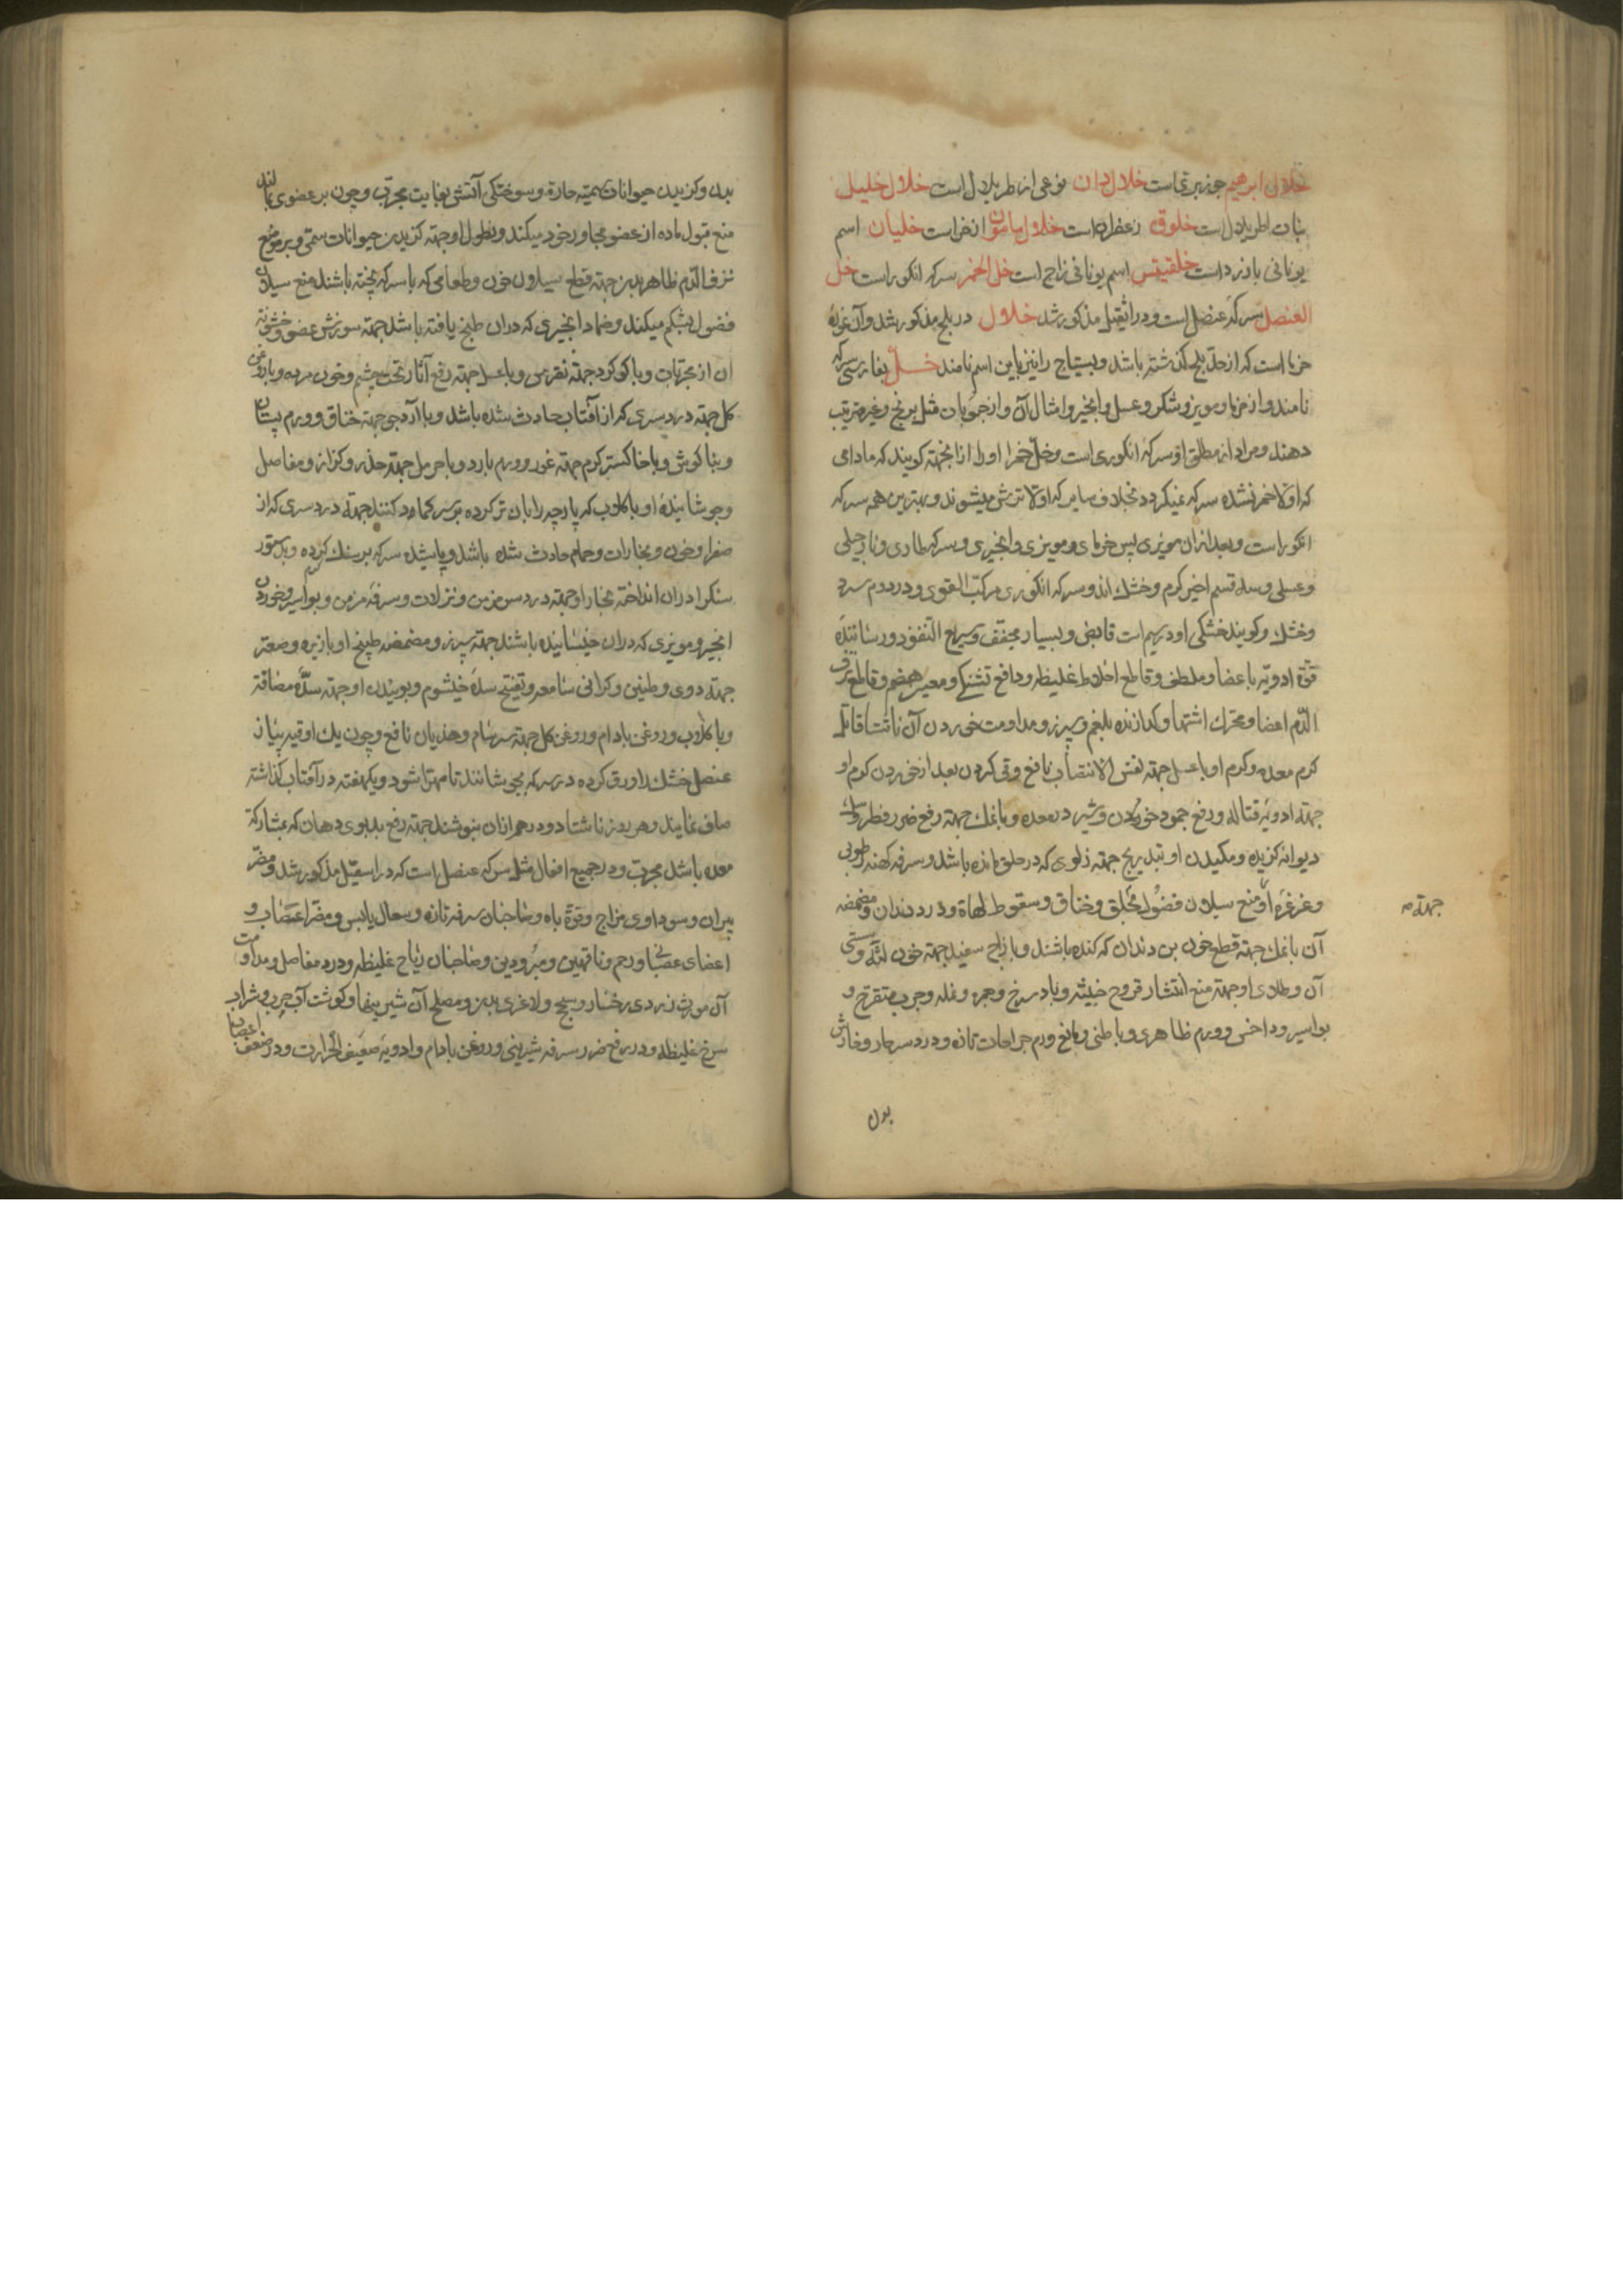 خلال ابرهیم جوز بر تماست خلال دان نوعی از اطریلال است خلال خلیل
نبات اطریلال است خلوق زعفران است خلال مامون اذخر است خلیان اسم
یونانی بادزرد است خلقیتس اسم یونانی زاج است خل الخمر سرکه انکور است خل
العنصل سرکهٔ عنصل است و در اشقیل مذکور شد خلال در بلح مذکور شد و آن غورهٔ
خرما است که از حد بلح کذشته باشد و بستاج را نیز باین اسم نامند خل بفارسی سرکه
نامند و از خرما و مویز و شکر و عسل و انجیر و امثال آن و از حبوبات مثل برنج و غیره ترتیب
دهند و مراد از مطلق او سرکهٔ انکوری است و خل خمر او را ازانجهته کویند که مادامی
که اولا خمر نشده سرکه نمیکردد بخلاف سایر که اولا ترش میشوند و بهترین همه سرکه
انکور است و بعد از ان مویزی پس خرمای و مویزی و انجیری و سرکه طاری و نارجیلی
و عسلی و سه قسم اخیر کرم و خشك اند و سرکه انکوری مرکب القوی و در دوم سرد
و خشك و کویند خشکی او در سیم است قابض و بسیار مجفف و سریع النفوذ و رسانندهٔ
قوة ادویه باعضا و ملطف و قاطع اخلاط غلیظه و دافع تشنکی و معین هضم و قاطع نزف
الدم اعضا و محرك اشتها و کدازنده بلغم و سپرز و مداومت خوردن آن ناشتا قاتل
کرم معده و کرم او باعسل جهته نفس الانتصاب نافع و قی کردن بعد از خوردن کرم او
جهته ادویه قتاله و رفع جمود خون و شیر در معده و بانمك جهته رفع ضرر فطر و سك
دیوانه کزیده و مکیدن او بتدریج جهته زلوی که در حلق مانده باشد و سرفه کهنه رطوبی
و غرغرهٔ او منع سیلان فضول بحلق و خناق و سقوط لهاة و درد دندان و مضمضه
جهته
آن بانمك جهته قطع خون بن دندان که کنده باشند و بازاج سفید جهته خون لثه و سستی
آن و طلای او جهته منع انتشار قروح خبیثه و باد سرخ و جمره و نمله و جرب متقرح و
بواسیر و داخس و ورم ظاهری و باطنی و مانع ورم جراحات تازه و درد سر حار و خارش
بدن
بدن و کزیدن حیوانات سمیه حاره و سوختکی آتش بغایت مجرب و چون بر عضوی بمالند
منع قبول ماده از عضو مجاور خود میکند و نطول او جهته کزیدن حیوانات سمی و بر موضع
نزف الدم ظاهر بدن جهته قطع سیلان خون و طعامی که باسرکه پخته باشند منع سیلان
فضول بشکم میکند و ضماد انجیری که دران طبخ یافته باشد جهته سوزش عضو و خشونة
ان از مجربات و باکوکرد جهته نقرس و باعسل جهته رفع آثار تحت چشم و خون مرده و باروغن
کل جهته درد سری که از آفتاب حادث شده باشد و باآرد جو جهته خناق و ورم پستان
و بناکوش و باخاکستر کرم جهته غدد و ورم بارد و باحرمل جهته خدر و کزاز و مفاصل
و جوشانیدهٔ او باکلاب که پارچه را بان تر کرده بر سر کماد کنند جهته درد سری که از
صفرا و خون و بخارات و حمام حادث شده باشد و پاشیده سرکه بر سنك کرم کرده و بدستور
سنکرا دران انداخته بخار او جهته درد سر مزمن و نزلات و سرفه مزمن و بواسیر و خوردن
انجیر و مویزی که دران خیسانیده باشند جهته سپرز و مضمضه طبیخ او بازیره و صعتر
جهته دوی و طنین و کرانی سامعه و تفتیح سدهٔ خیشوم و بوییدن او جهته سدهٔ مصفاة
و باکلاب و روغن بادام و روغن کل جهته سرسام و هذیان نافع و چون یك اوقیه پیاز
عنصل خشك را ورق کرده در سرکه بجوشانند تا مهرا شود و یکهفته در آفتاب کذاشته
صاف نمایند و هر روز ناشتا دو درهم ازان بنوشند جهته رفع بدبوی دهان که بمشارکة
معده باشد مجرب و در جمیع افعال مثل سرکه عنصل است که در اسقیل مذکور شد و مضر
پیران و سوداوی مزاج و قوة باه و صاحبان سرفه تازه و سعال یابس و مضر اعصاب و
اعضای عصبانی و رحم و ناقهین و مبرودین و صاحبان ریاح غلیظه و درد مفاصل و مداومت
آن مورث زردی رخسار و سحج و لاغری بدن و مصلح آن شیرینیها و کوشت آب چرب و شراب
سرخ غلیظه و در رفع ضرر سرفه شیرینی و روغن بادام و ادویهٔ ضعیف الحرارت و در ضعف اعصاب